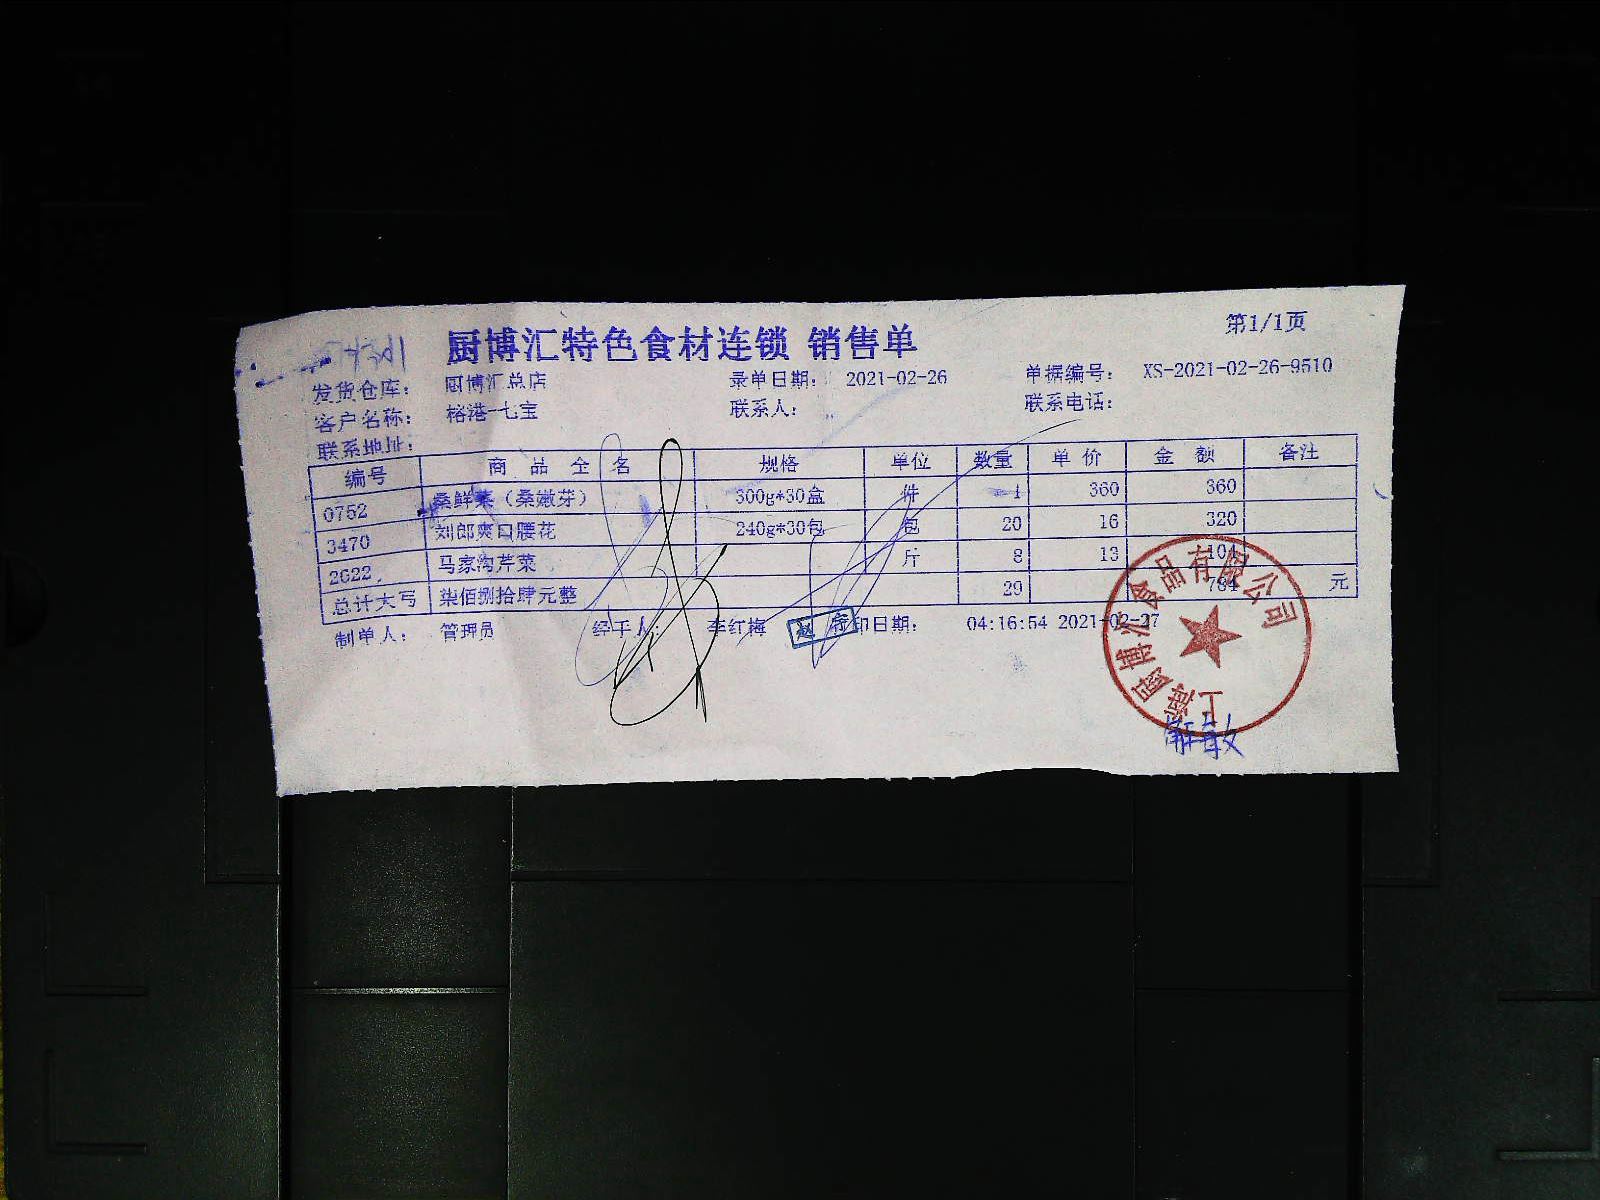 厨博汇特色食材连锁 销售单
第1/1页
发货仓库: 厨博汇总店 录单日期: 2021-02-26 单据编号: XS-2021-02-26-9510
客户名称: 榕港-七宝 联系人: 联系电话:
联系地址:
编号 商品全名 规格 单位 数量 单价 金额 备注
0752 桑鲜菜（桑嫩芽） 300g*30盒 件 1 360 360
3470 刘郎爽口腰花 240g*30包 包 20 16 320
2622 马家沟芹菜 斤 8 13 104
总计大写 柒佰捌拾肆元整 29 784 元
制单人: 管理员 经手人: 李红梅 打印日期: 04:16:54 2021-02-27
上海厨博汇食品有限公司